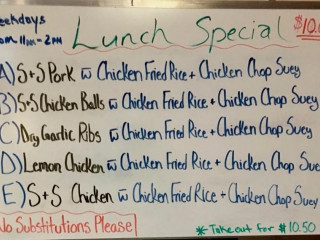 Weekdays
Lunch Special
$10.
from 11am - 2pm
A) S+S Pork w Chicken Fried Rice + Chicken Chop Suey
B) S+S Chicken Balls w Chicken Fried Rice + Chicken Chop Suey
C) Dry Garlic Ribs w Chicken Fried Rice + Chicken Chop Suey
D) Lemon Chicken w Chicken Fried Rice + Chicken Chop Suey
E) S+S Chicken w Chicken Fried Rice + Chicken Chop Suey
No Substitutions Please
* Take out for $10.50